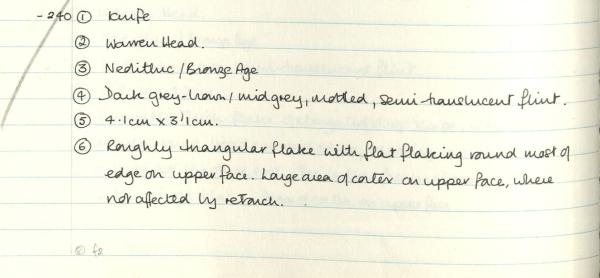 -240 ① Knife
② Warren Head.
③ Neolithic / Bronze Age
④ Dark grey-brown / midgrey, mottled, semi-translucent flint.
⑤ 4.1cm x 3.1cm.
⑥ Roughly triangular flake with flat flaking round most of
edge on upper face. Large area of cortex on upper face, where
not affected by retouch.